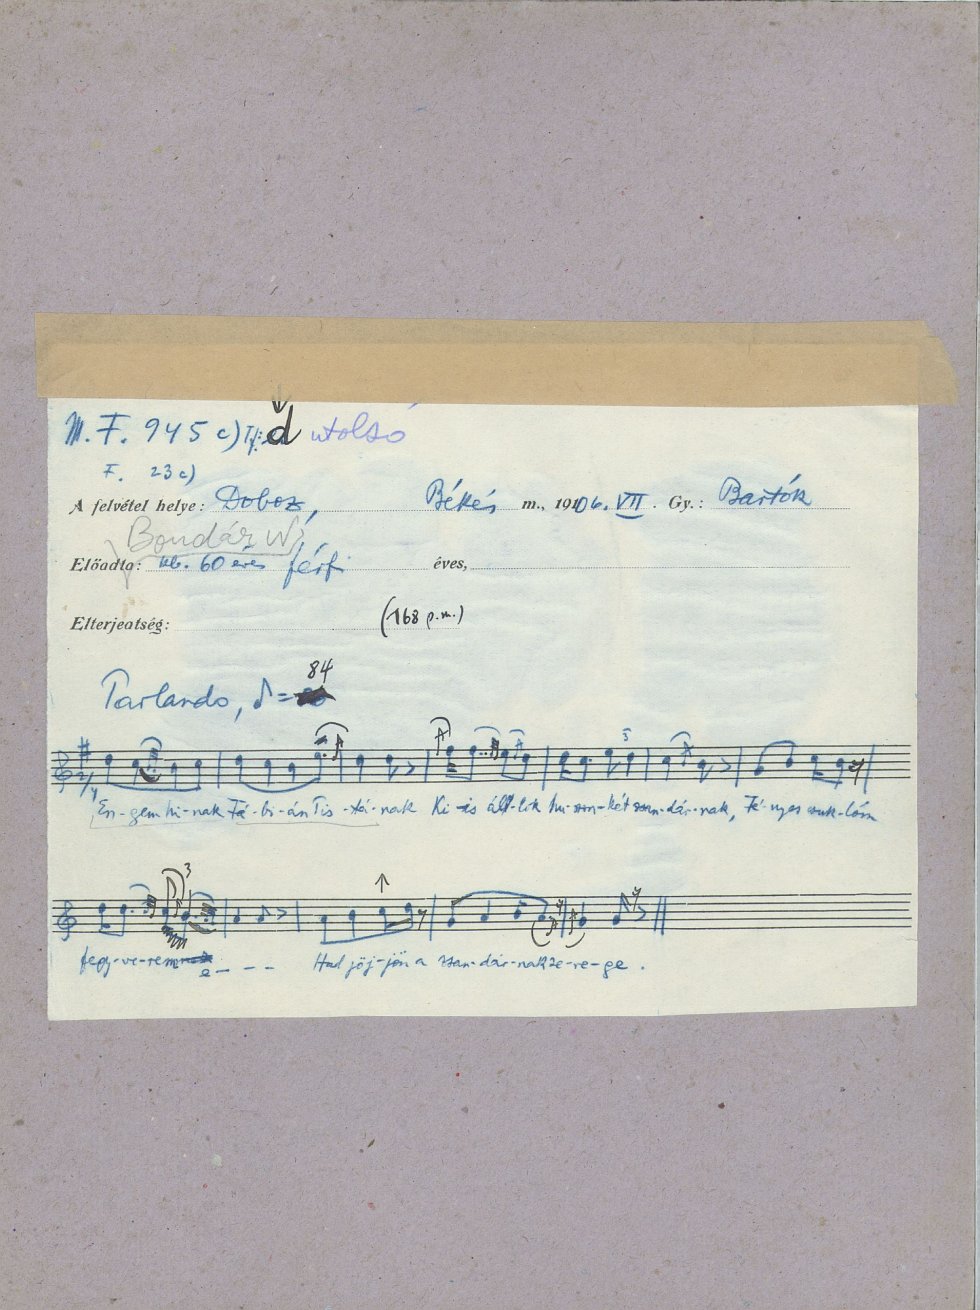 M. F. 945 c) Tf: d utolsó
F. 23 c)
A felvétel helye: Doboz, Békés m., 1906. VII. Gy.: Bartók
Bondár
Előadta: kb. 60 éves férfi éves,
Elterjeatség: (168 p.m.)
84
Parlando, ♪ =
2/4
3
En-gem hi-nak Fá-bi-án Pis-tá-nak Ki-is áll-lik hu-szon-két zsan-dár-nak, Fé-nyes suk-lóm
3
fegy-ve-rem e- - - - Had jöj-jön a zsan-dár-nak ze-re-ge.